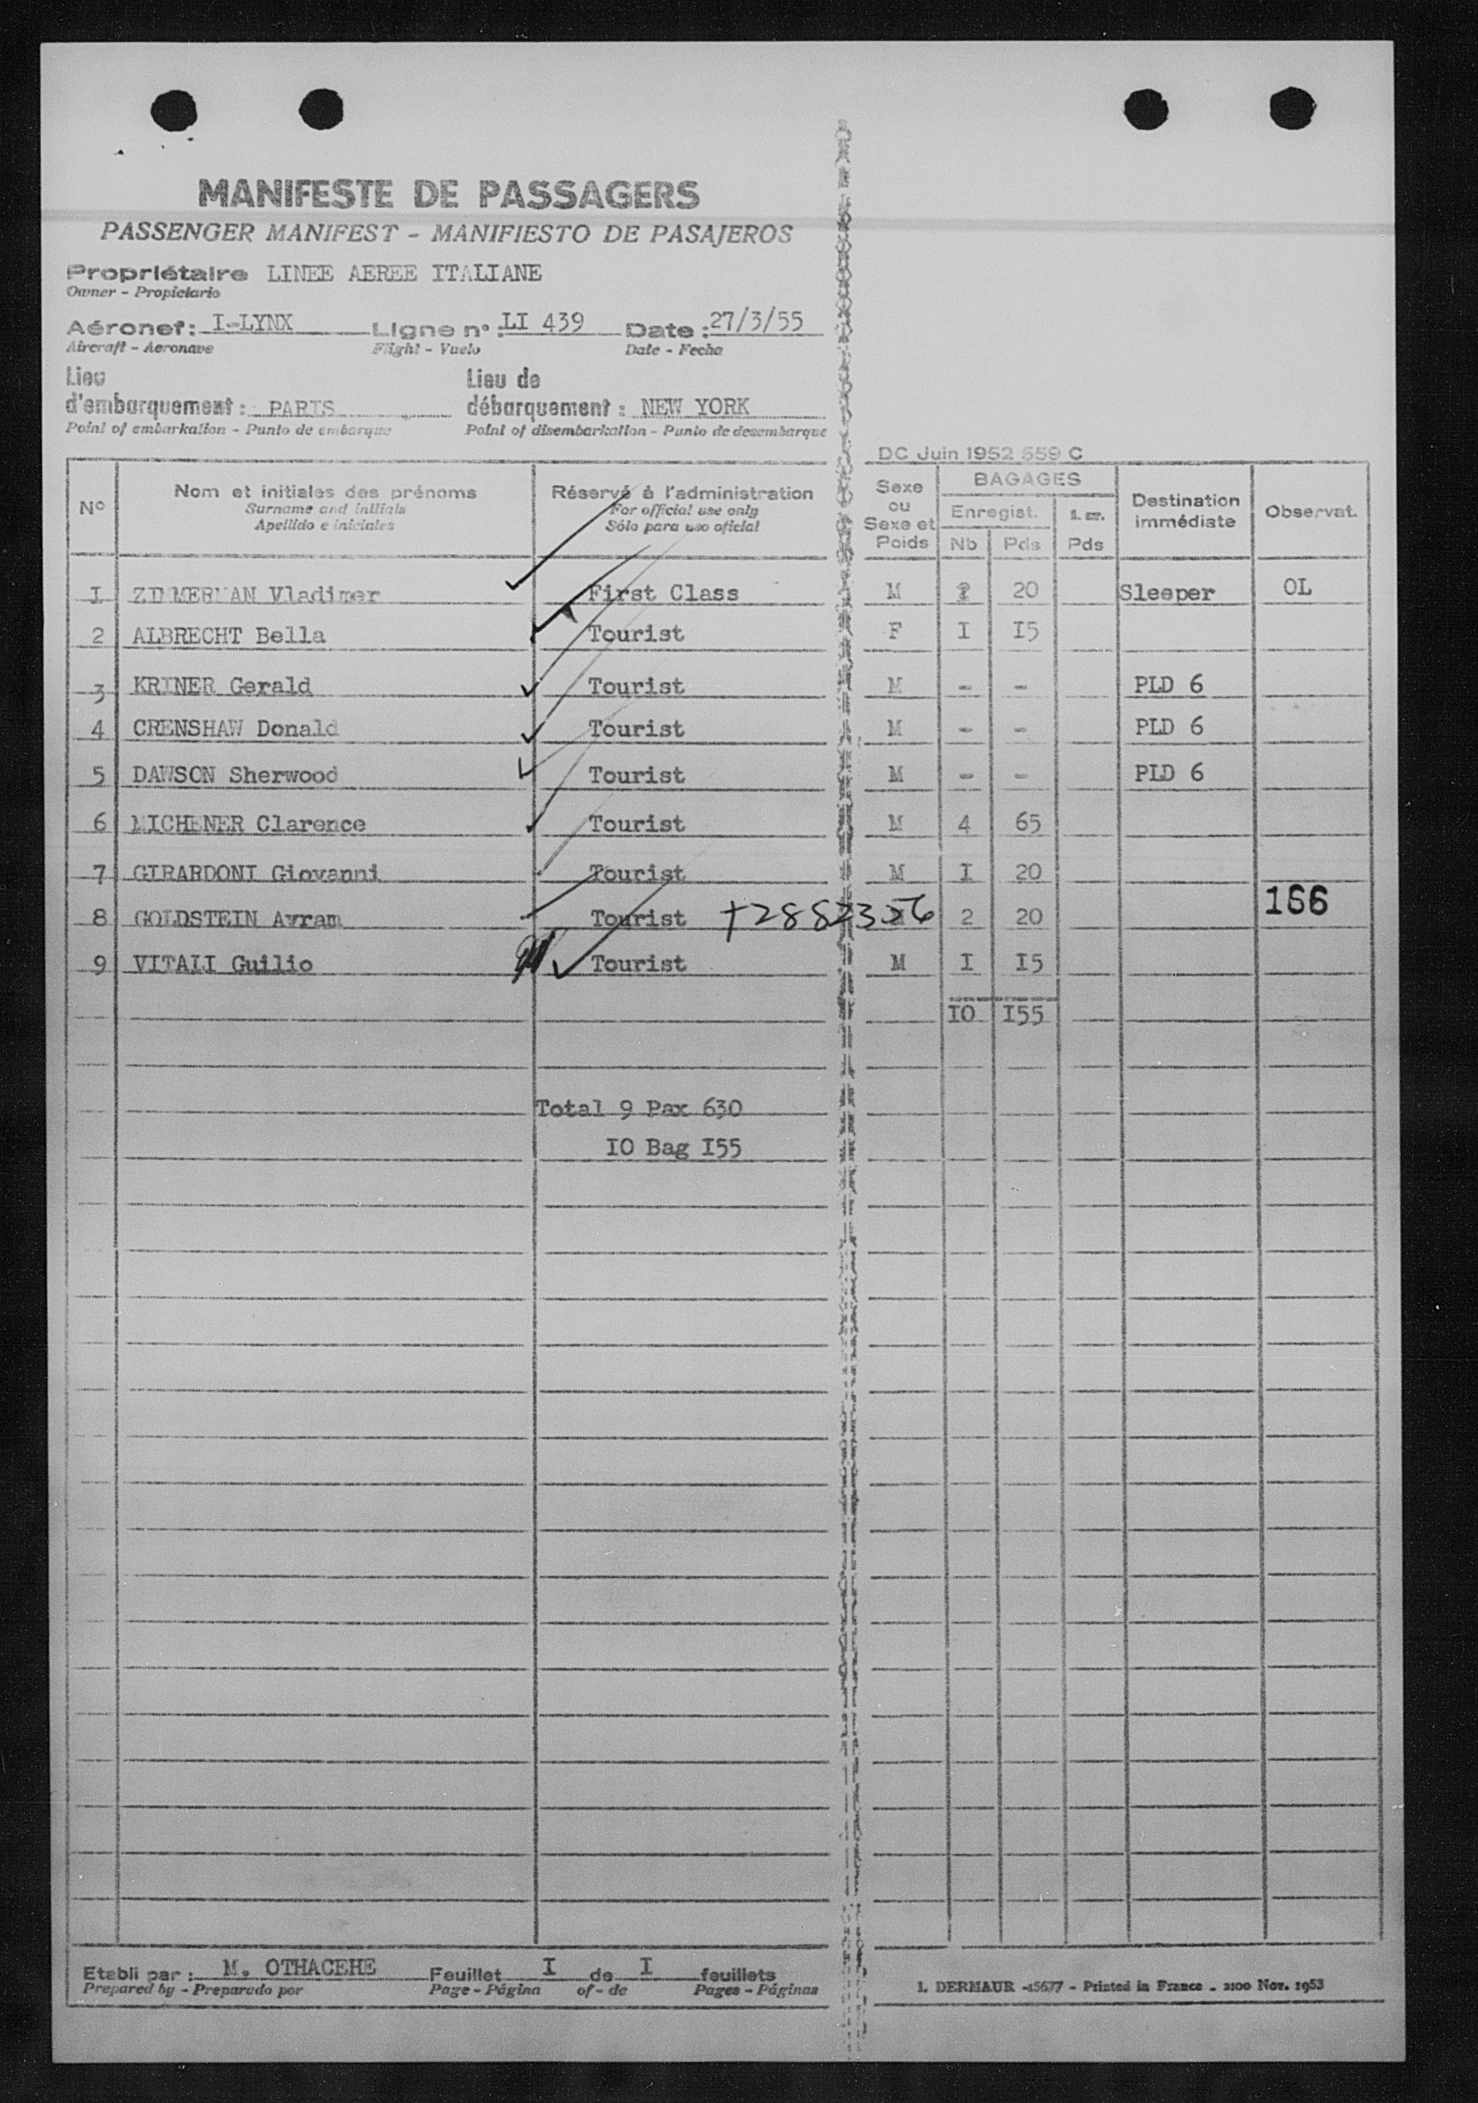 MANIFESTE DE PASSAGERS
PASSENGER MANIFEST - MANIFIESTO DE PASAJEROS
Propriétaire LINEE AEREE ITALIANE
Owner - Propietario
Aéronef: I-LYNX Ligne n° : LI 439 Date : 27/3/55
Aircraft - Aeronave Flight - Vuelo Date - Fecha
Lieu Lieu de
d'embarquement : PARIS débarquement : NEW YORK
Point of embarkation - Punto de embarque Point of disembarkation - Punto de desembarque
DC Juin 1952 559 C
N° Nom et initiales des prénoms Réservé à l'administration Sexe BAGAGES Destination Observat.
Surname and initials For official use only ou Enregist. immédiate
Apellido e iniciales Sólo para uso oficial Sexe et
Poids Nb Pds Pds
I ZIMMERMAN Vladimer First Class M 20 Sleeper OL
2 ALBRECHT Bella Tourist F I I5
3 KRINER Gerald Tourist M - - PLD 6
4 CRENSHAW Donald Tourist M - - PLD 6
5 DAWSON Sherwood Tourist M - - PLD 6
6 MICHENER Clarence Tourist M 4 65
7 GIRARDONI Giovanni Tourist M I 20
8 GOLDSTEIN Avram Tourist 2 20 166
9 VITALI Guilio Tourist M I I5
IO I55
Total 9 Pax 630
IO Bag I55
Etabli par : M. OTHACEHE Feuillet I de I feuillets
Prepared by - Preparado por Page - Página of - de Pages - Páginas
I. DERMAUR -15677 - Printed in France - 2100 Nov. 1953